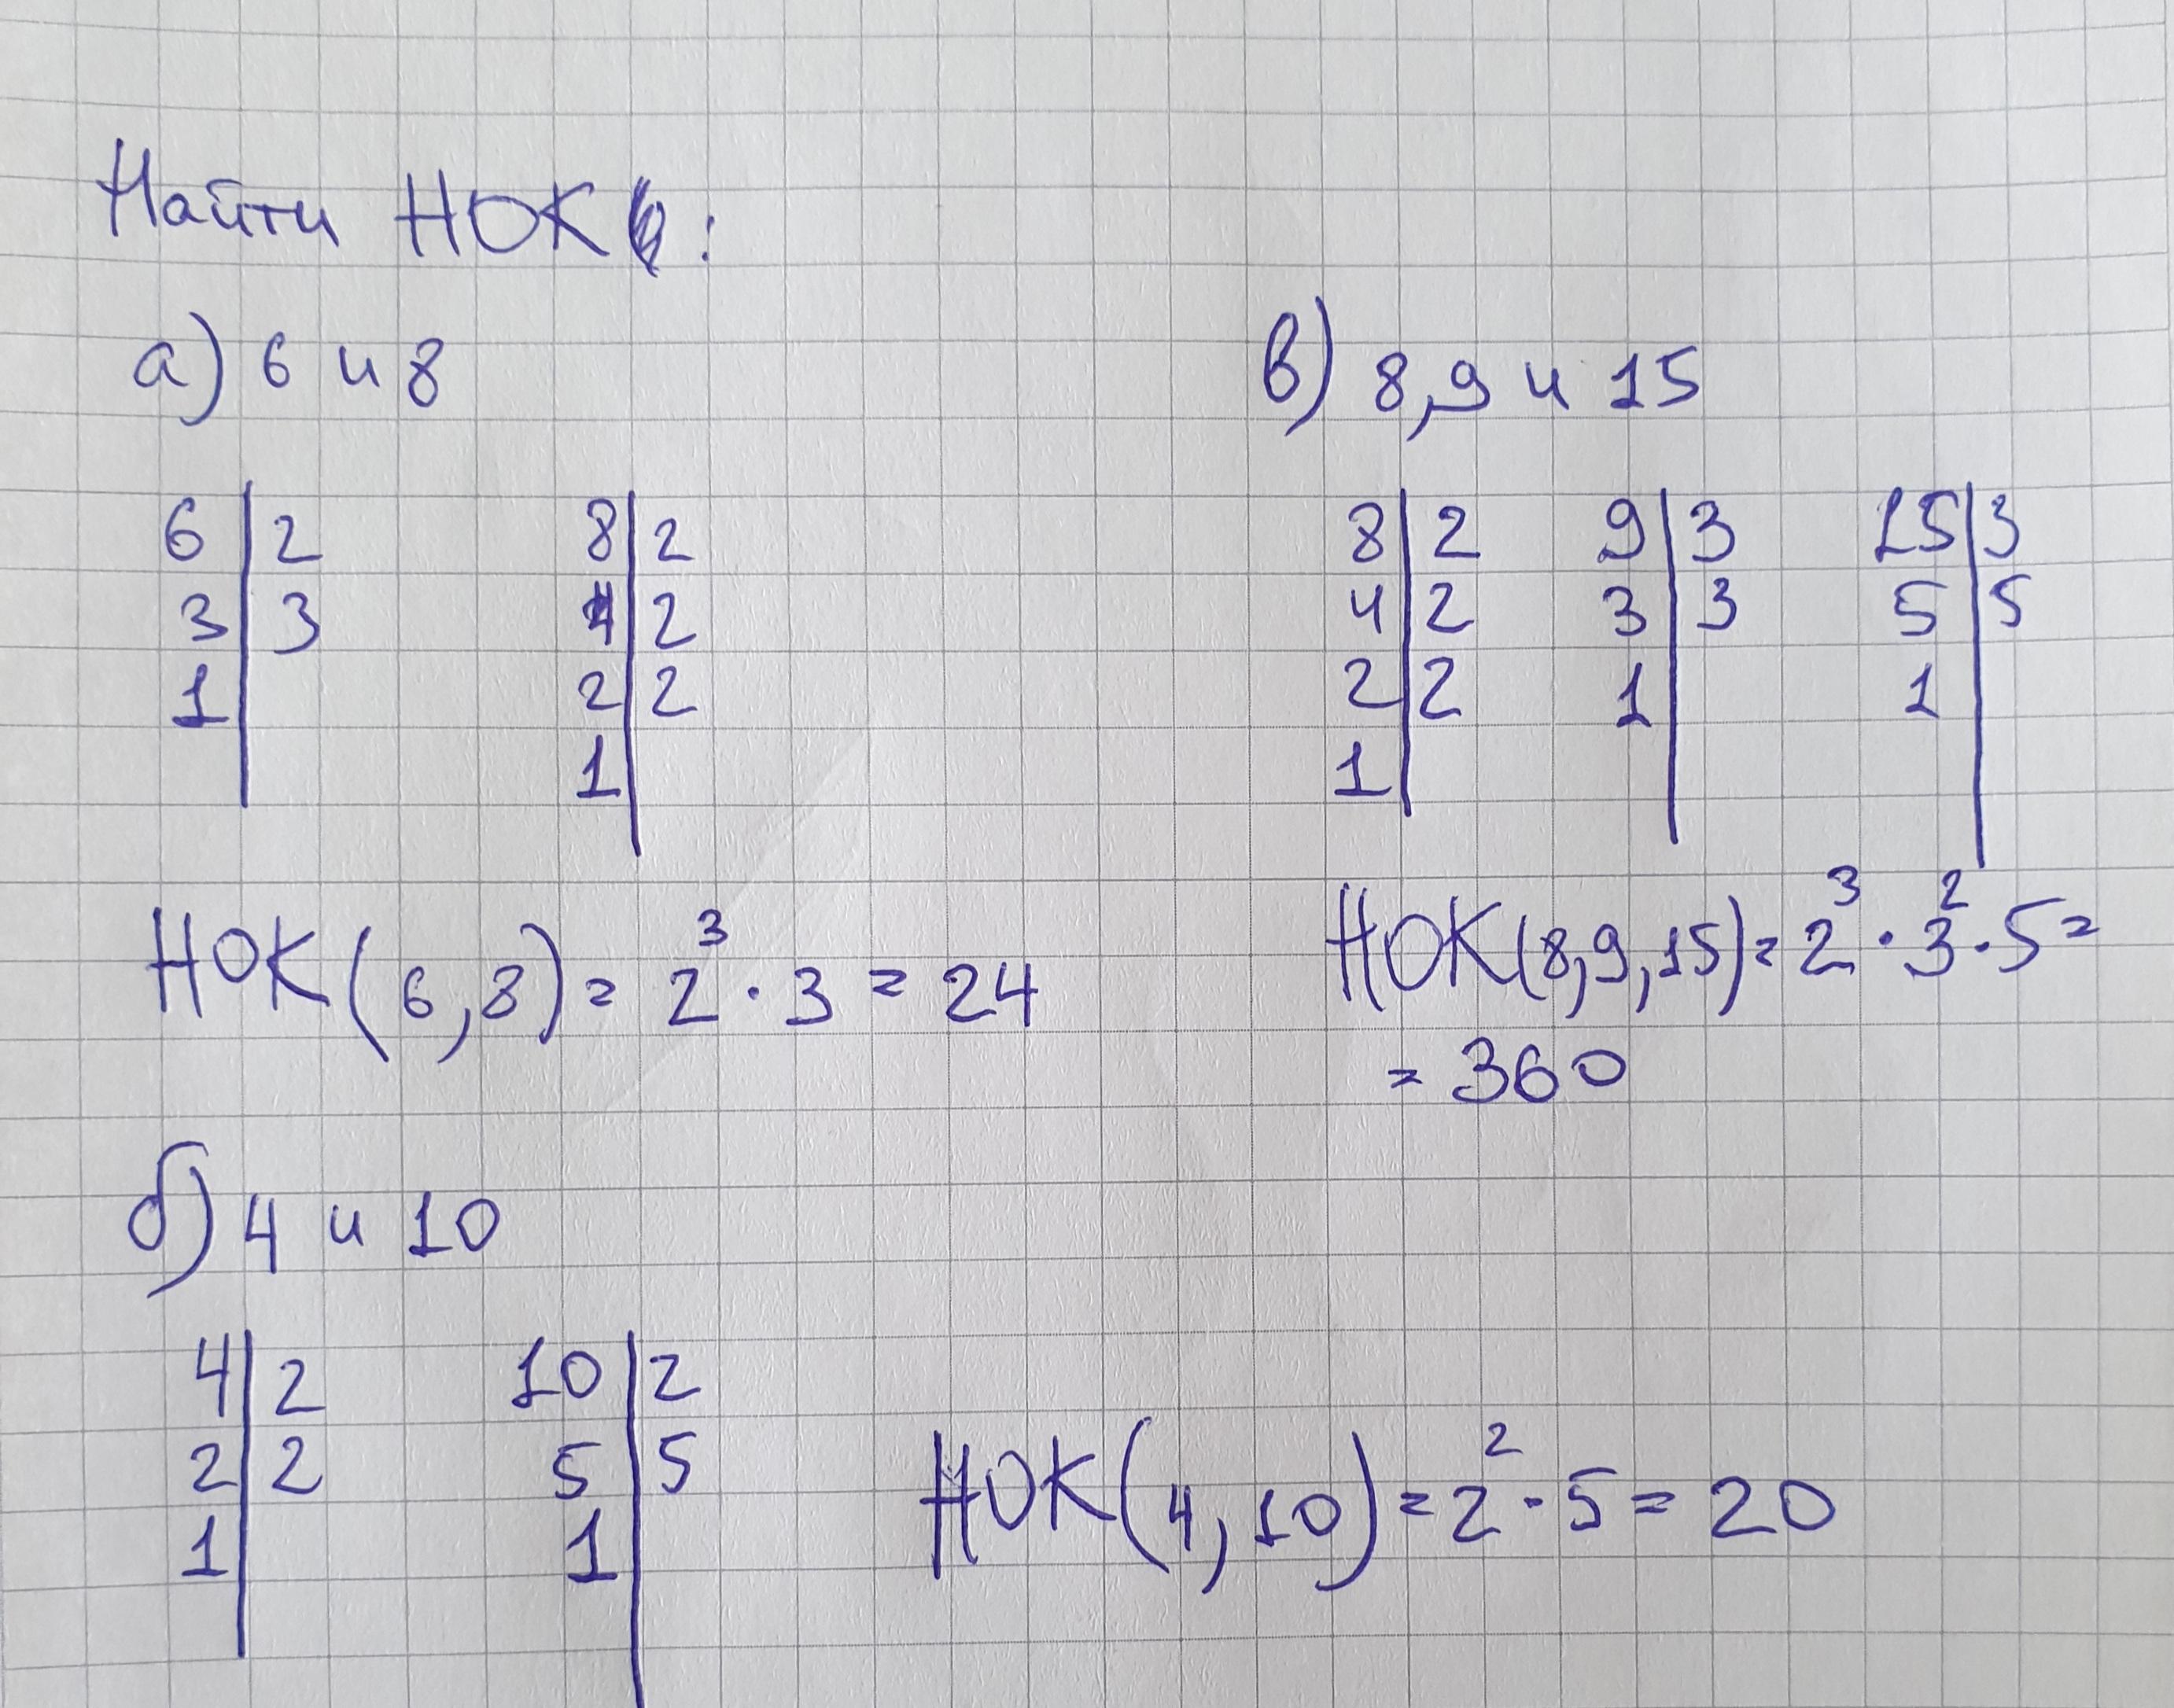 Найти НОК:
а) 6 и 8
6 | 2
3 | 3
1 |
8 | 2
4 | 2
2 | 2
1 |
НОК(6,8) = 2³ · 3 = 24
б) 4 и 10
4 | 2
2 | 2
1 |
10 | 2
5 | 5
1 |
НОК(4,10) = 2² · 5 = 20
в) 8,9 и 15
8 | 2
4 | 2
2 | 2
1 |
9 | 3
3 | 3
1 |
15 | 3
5 | 5
1 |
НОК(8,9,15) = 2³ · 3² · 5 =
= 360